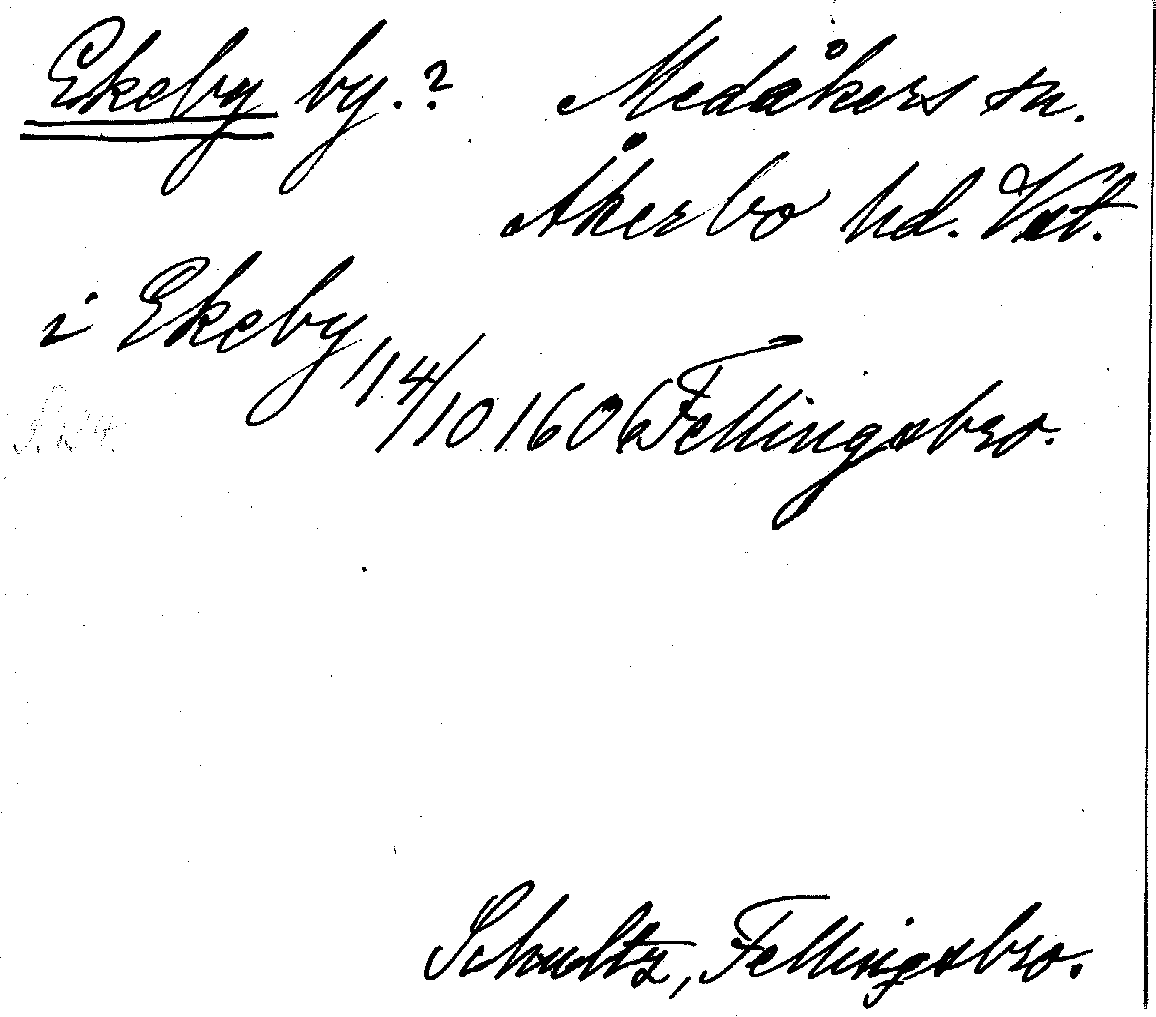 Ekeby by.? Medåkers sn.
Åkerbo hd. Vstm.
i Ekeby 14/10 1606 Fellingsbro.
Schultz, Fellingsbro.